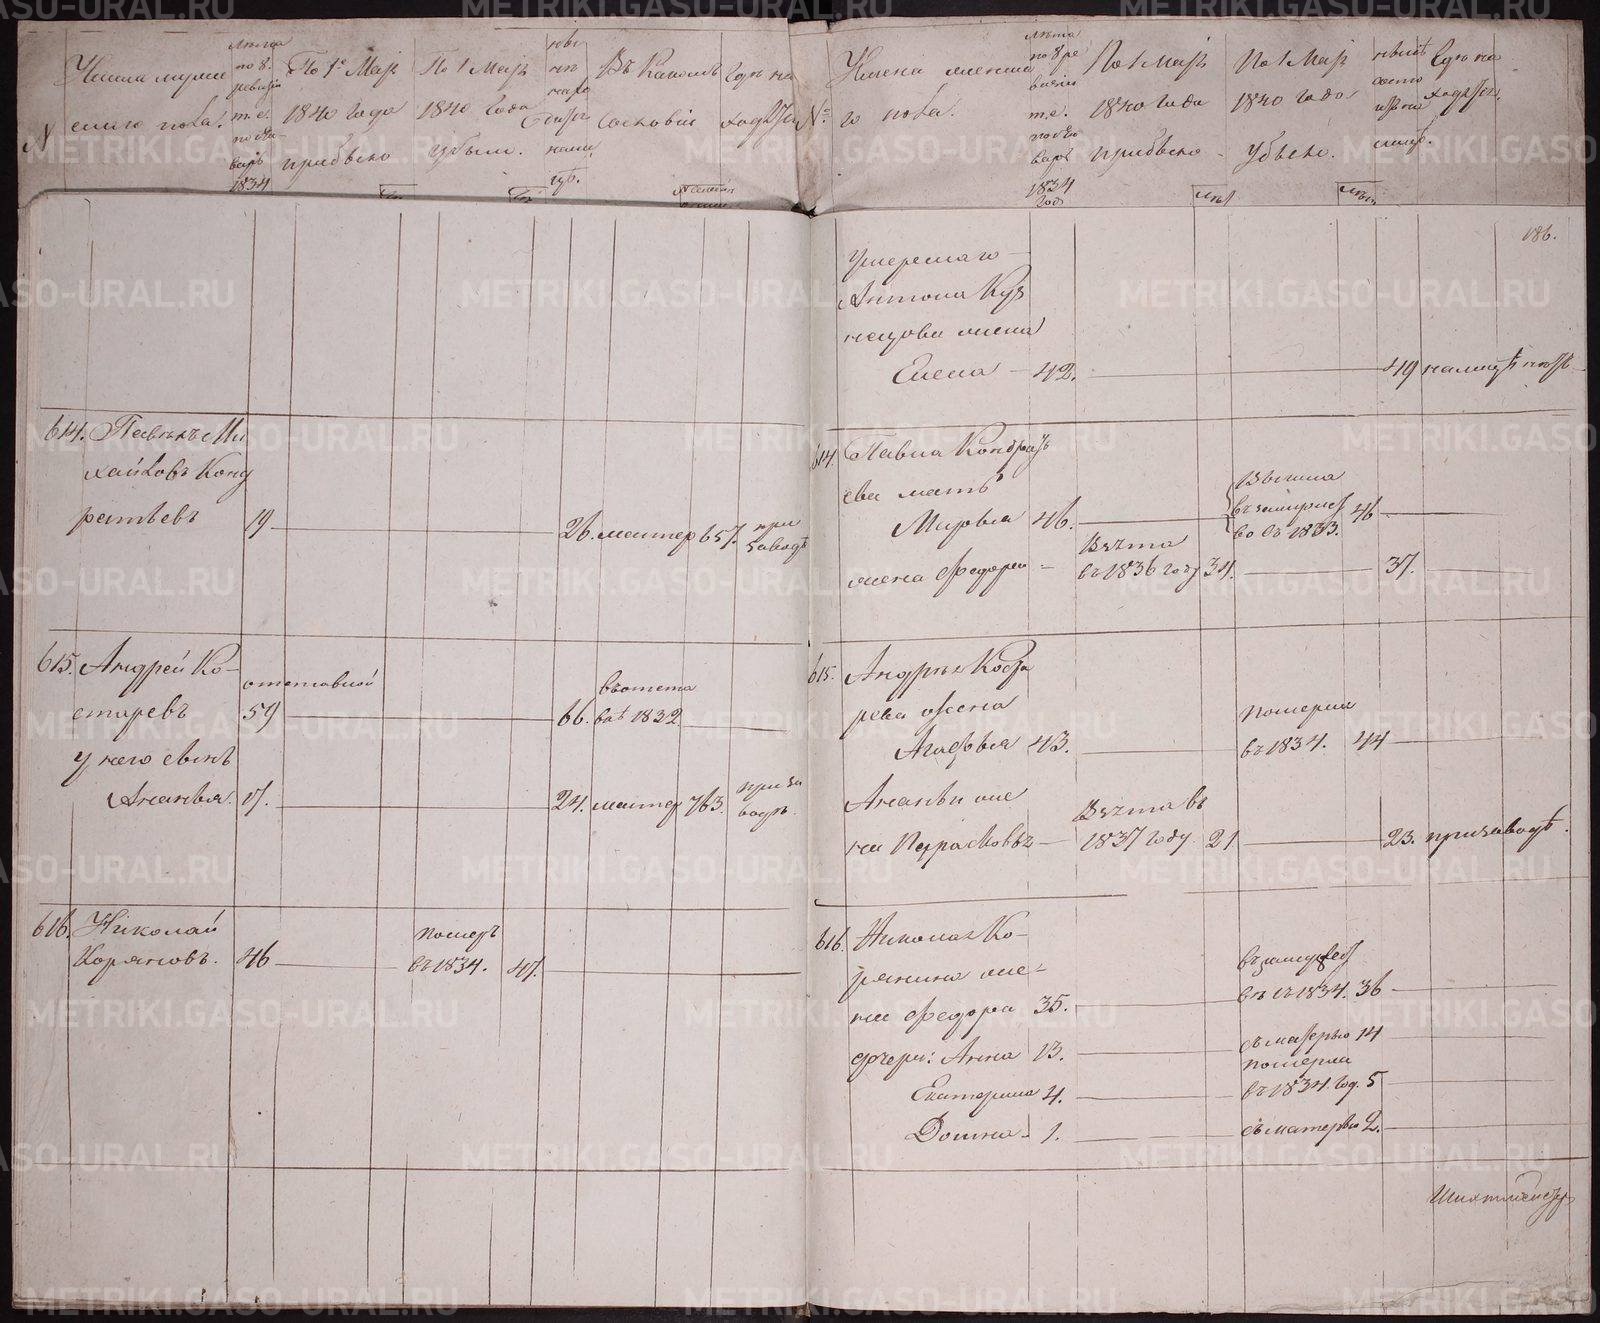 Имена мужескаго пола.
лѣта по 8. ревизіи т.е. по январь 1834
По 1е Мар. 1840 года прибыло
По 1 Мар. 1840 года убыли.
Въ какомъ сословіи
Где находятся
№
Имена женскаго пола.
лѣта по 8 ревизіи т.е. по январь 1834 год
По 1 Мар. 1840 года прибыло
По 1 Мар. 1840 года убыло.
Где находятся
186.
Умершаго
Антона Куз
нецова жена
Елена 42. 49
614. Павелъ Ми
хайловъ Конд
ратьевъ 19 26. мастер 657. при заводѣ
614. Павла Кондрать
ева мать
Марья 46. Вышла въ замужество въ 1833. 46
жена Федорья Взята въ 1836 году 34. 37.
615. Андрей Ко
старевъ отставной 59 66. 1832
у него сынъ
Ананья. 17. 24. мастер 763. при заводѣ.
615. Андрея Коста
рева жена
Агафья 43. померла въ 1834. 44
Ананьи же
на Парасковья Взята въ 1837 году 21 23. при заводѣ.
616. Николай
Коряковъ. 46 померъ въ 1834. 47.
616. Николая Ко
рякина же
на Федора 35. въ замужество въ 1834. 36
дочери: Анна 13. съ матерью 14
Екатерина 4. померла въ 1834. год. 5
Домна 1. съ матерью 2.
Шихтмейстер
METRIKI.GASO-URAL.RU